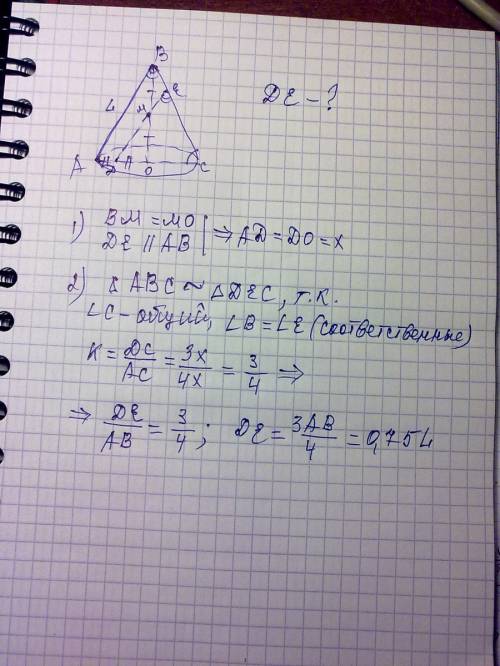 B
L
E
DE - ?
M
A
D
O
C
1) BM = MO
DE || AB | ⇒ AD = DO = x
2) △ ABC ~ △DEC, т.к.
∠C - общий, ∠B = ∠E (соответственные)
K = DC/AC = 3x/4x = 3/4 ⇒
⇒ DE/AB = 3/4; DE = 3AB/4 = 0,75L